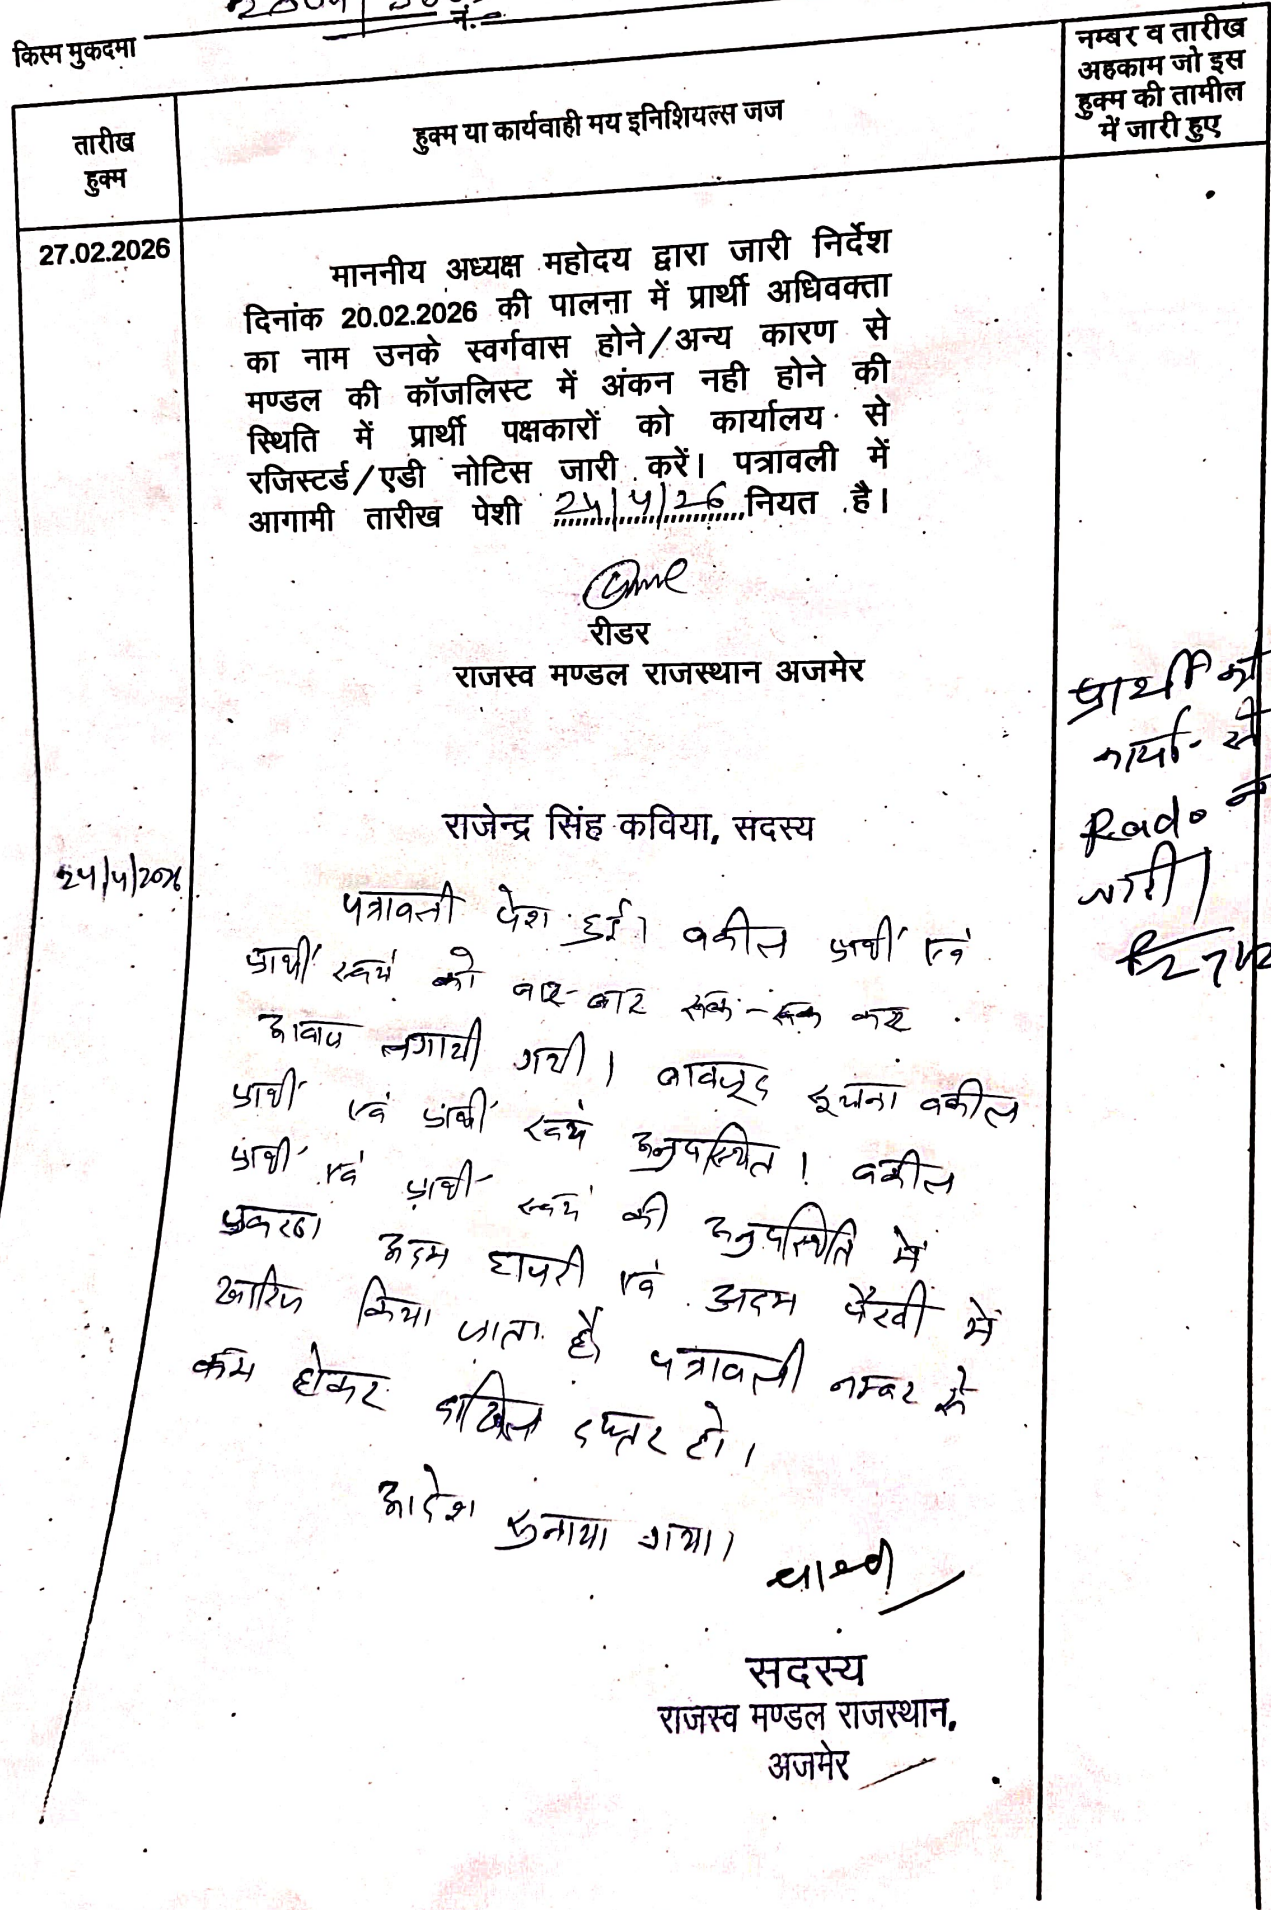 किस्म मुकदमा
नं.
तारीख
हुक्म
हुक्म या कार्यवाही मय इनिशियल्स जज
नम्बर व तारीख
अहकाम जो इस
हुक्म की तामील
में जारी हुए
27.02.2026
माननीय अध्यक्ष महोदय द्वारा जारी निर्देश
दिनांक 20.02.2026 की पालना में प्रार्थी अधिवक्ता
का नाम उनके स्वर्गवास होने/अन्य कारण से
मण्डल की कॉजलिस्ट में अंकन नही होने की
स्थिति में प्रार्थी पक्षकारों को कार्यालय से
रजिस्टर्ड/एडी नोटिस जारी करें। पत्रावली में
आगामी तारीख पेशी 24/4/26 नियत है।
रीडर
राजस्व मण्डल राजस्थान अजमेर
प्रार्थी को
कार्या- से
जारी।
राजेन्द्र सिंह कविया, सदस्य
24/4/2026
पत्रावली पेश हुई। वकील प्रार्थी एवं
प्रार्थी स्वयं को बार-बार रूक-रूक कर
आवाज लगायी गयी। बावजूद सूचना वकील
प्रार्थी एवं प्रार्थी स्वयं अनुपस्थित। वकील
प्रार्थी एवं प्रार्थी स्वयं की अनुपस्थिति में
प्रकरण अदम हाजरी एवं अदम पैरवी में
खारिज किया जाता है। पत्रावली नम्बर से
कम होकर दाखिल दफ्तर हो।
आदेश सुनाया गया।
सदस्य
राजस्व मण्डल राजस्थान,
अजमेर